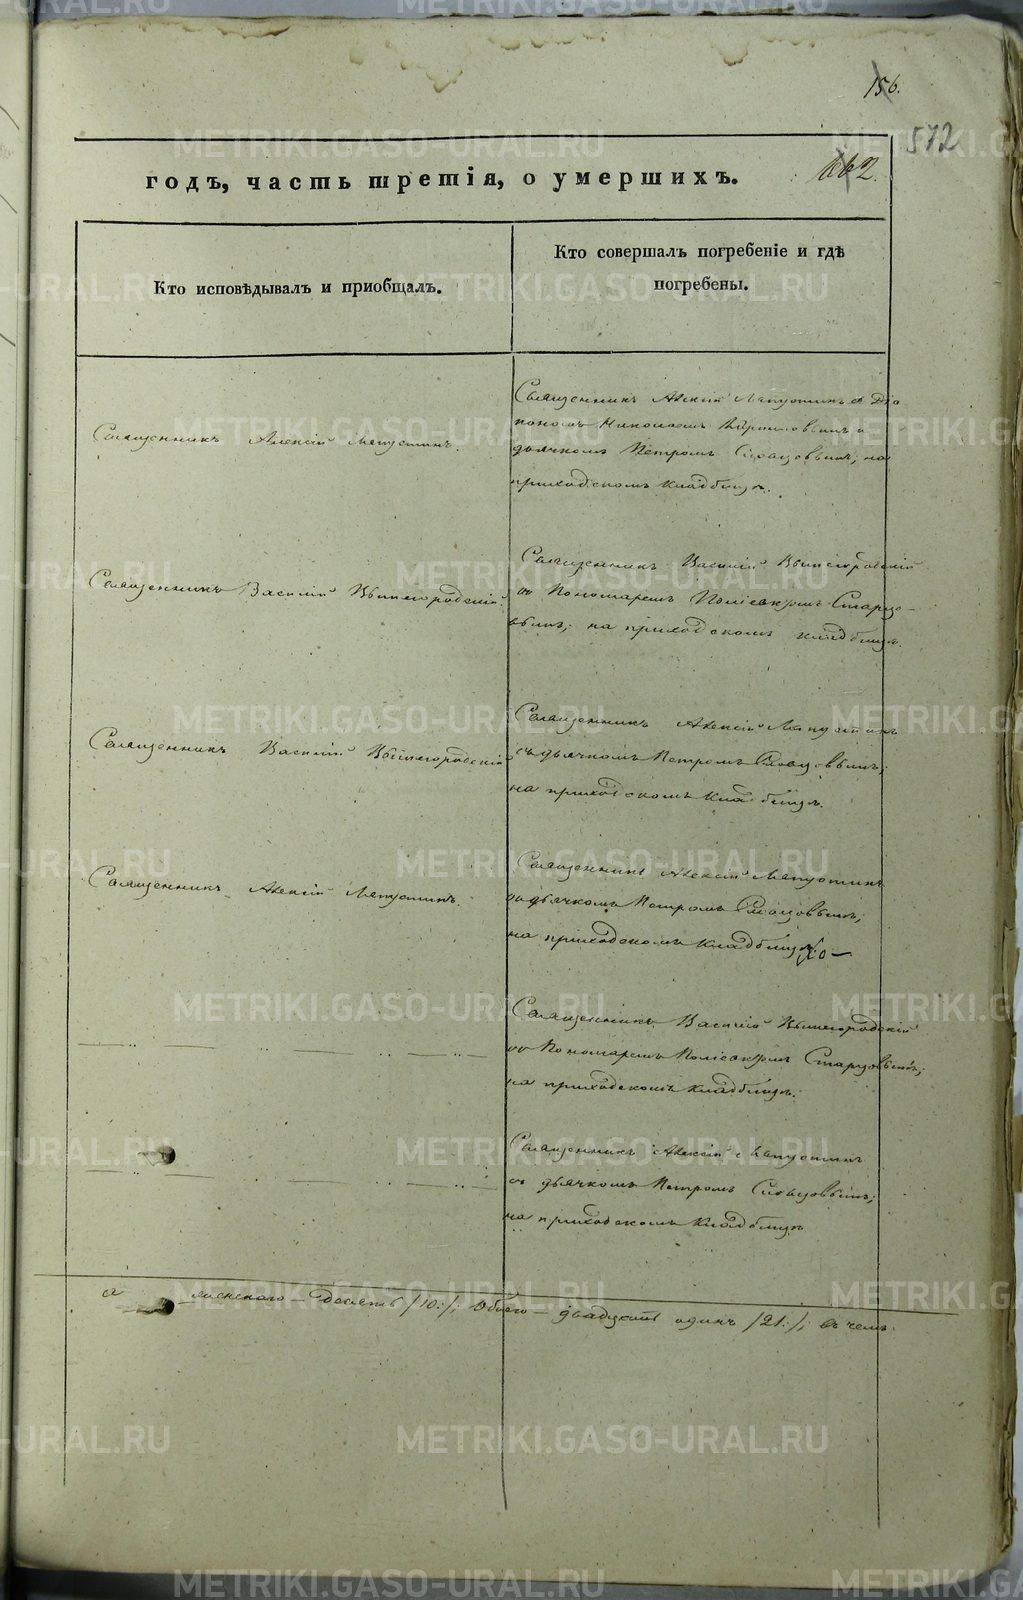 156.
572
162.
годъ, часть третія, о умершихъ.
Кто исповѣдывалъ и приобщалъ.
Кто совершалъ погребеніе и гдѣ
погребены.
Священникъ Алексій Лапустинъ.
Священникъ Алексій Лапустинъ съ Діа
кономъ Николаемъ и
дьячкомъ Петромъ Словцовымъ; на
приходскомъ кладбищѣ.
Священникъ Василій Вышегородскій.
Священникъ Василій Вышегородскій
съ Пономаремъ Старцо-
вымъ; на приходскомъ кладбищѣ.
Священникъ Василій Вышегородскій
Священникъ Алексій Лапустинъ
съ дьячкомъ Петромъ Словцовымъ;
на приходскомъ кладбищѣ.
Священникъ Алексій Лапустинъ.
Священникъ Алексій Лапустинъ
съ дьячкомъ Петромъ Словцовымъ;
на приходскомъ кладбищѣ.
Священникъ Василій Вышегородскій
съ Пономаремъ Старцовымъ;
на приходскомъ кладбищѣ.
Священникъ Алексій Лапустинъ
съ дьячкомъ Петромъ Словцовымъ;
на приходскомъ кладбищѣ
а женскаго – десять /10:/; Обоего – двадцать одинъ /21:/; въ чемъ
METRIKI.GASO-URAL.RU